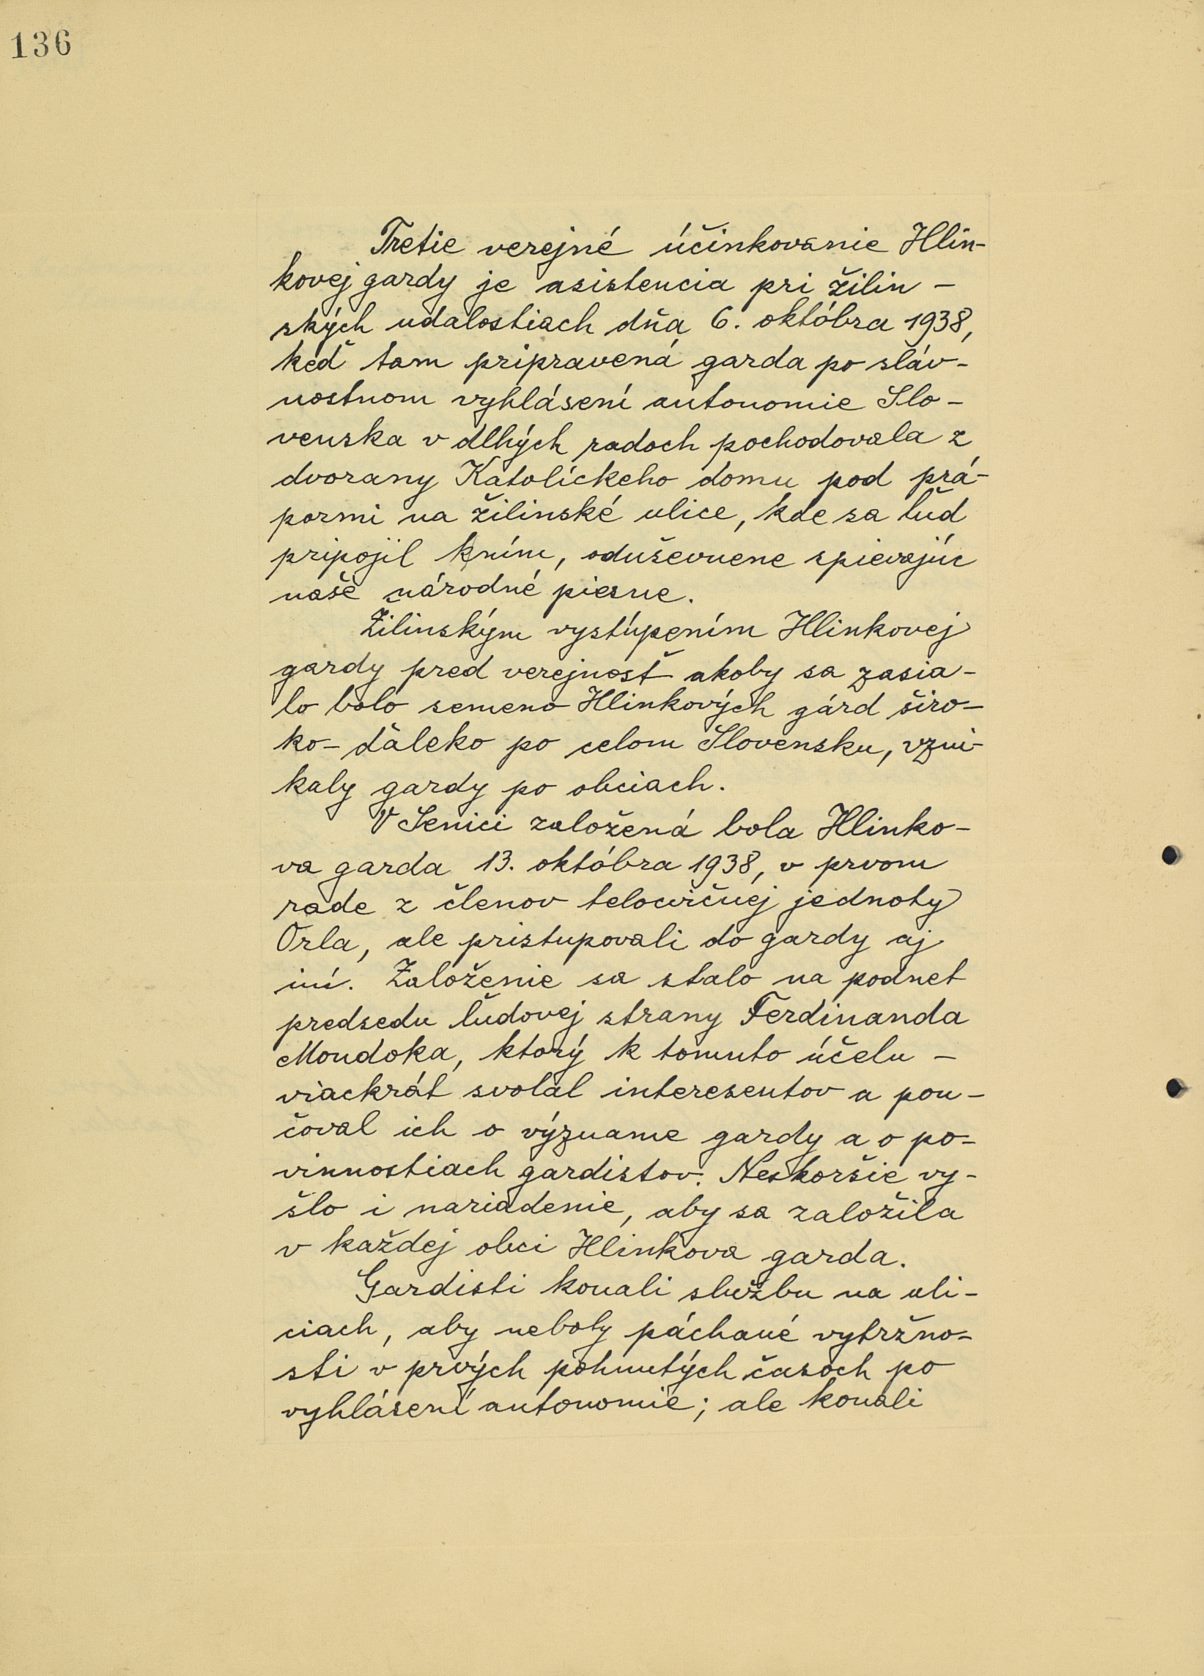 136
Tretie verejné účinkovanie Hlin-
kovej gardy je asistencia pri žilin-
ských udalostiach dňa 6. októbra 1938,
keď tam pripravená garda po sláv-
nostnom vyhlásení autonomie Slo-
venska v dlhých radoch pochodovala z
dvorany Katolíckeho domu pod prá-
pormi na žilinské ulice, kde sa ľud
pripojil kním, oduševnene spievajúc
naše národné piesne.
Žilinským vystúpením Hlinkovej
gardy pred verejnosť akoby sa zasia-
lo bolo semeno Hlinkových gárd širo-
ko-ďaleko po celom Slovensku, vzni-
kaly gardy po obciach.
V Senici založená bola Hlinko-
va garda 13. októbra 1938, v prvom
rade z členov telocvičnej jednoty
Orla, ale pristupovali do gardy aj
iní. Založenie sa stalo na podnet
predsedu ľudovej strany Ferdinanda
Mondoka, ktorý k tomuto účelu -
viackrát svolal interesentov a pou-
čoval ich o význame gardy a o po-
vinnostiach gardistov. Neskoršie vy-
šlo i nariadenie, aby sa založila
v každej obci Hlinkova garda.
Gardisti konali službu na uli-
ciach, aby neboly páchané vytržno-
sti v prvých pohnutých časoch po
vyhlásení autonomie; ale konali